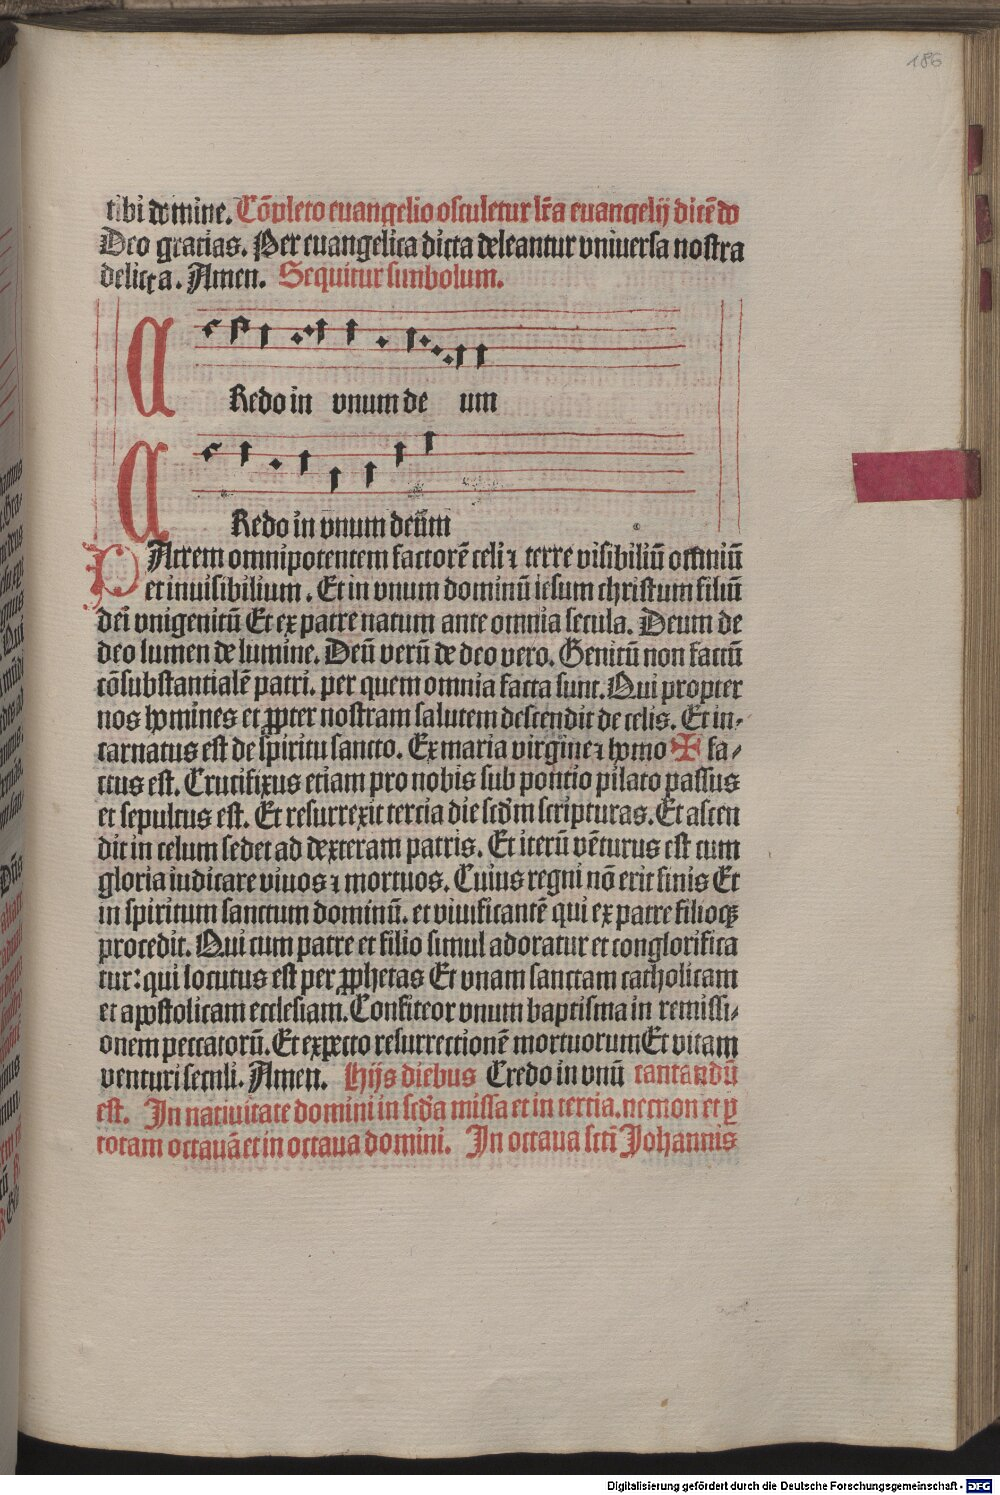 186
tibi domine. Cōpleto euangelio osculetur lr̄a euangelij dicēdo
Deo gracias. Per euangelica dicta deleantur vniuersa nostra
delicta. Amen. Sequitur simbolum.
CRedo in vnum de um
CRedo in vnum deūm
PAtrem omnipotentem factorē celi ⁊ terre visibiliū omniū
et inuisibilium. Et in vnum dominū iesum christum filiū
dei vnigenitū Et ex patre natum ante omnia secula. Deum de
deo lumen de lumine. Deū verū de deo vero. Genitū non factū
cōsubstantialē patri. per quem omnia facta sunt. Qui propter
nos homines et ꝓpter nostram salutem descendit de celis. Et in-
carnatus est de spiritu sancto. Ex maria virgine ⁊ homo ✠ fa-
ctus est. Crucifixus etiam pro nobis sub pontio pilato passus
et sepultus est. Et resurrexit tercia die scdm̄ scripturas. Et ascen
dit in celum sedet ad dexteram patris. Et iterū vēturus est cum
gloria iudicare viuos ⁊ mortuos. Cuius regni nō erit finis Et
in spiritum sanctum dominū. et viuificantē qui ex patre filioqꝫ
procedit. Qui cum patre et filio simul adoratur et conglorifica
tur: qui locutus est per ꝓphetas Et vnam sanctam catholicam
et apostolicam ecclesiam. Confiteor vnum baptisma in remissi-
onem peccatorū. Et expecto resurrectionē mortuorum Et vitam
venturi seculi. Amen. Hijs diebus Credo in vnū cantandū
est. In natiuitate domini in scd̄a missa et in tercia. necnon et ꝑ
totam octauā et in octaua domini. In octaua scti Johannis
Digitalisierung gefördert durch die Deutsche Forschungsgemeinschaft - DFG